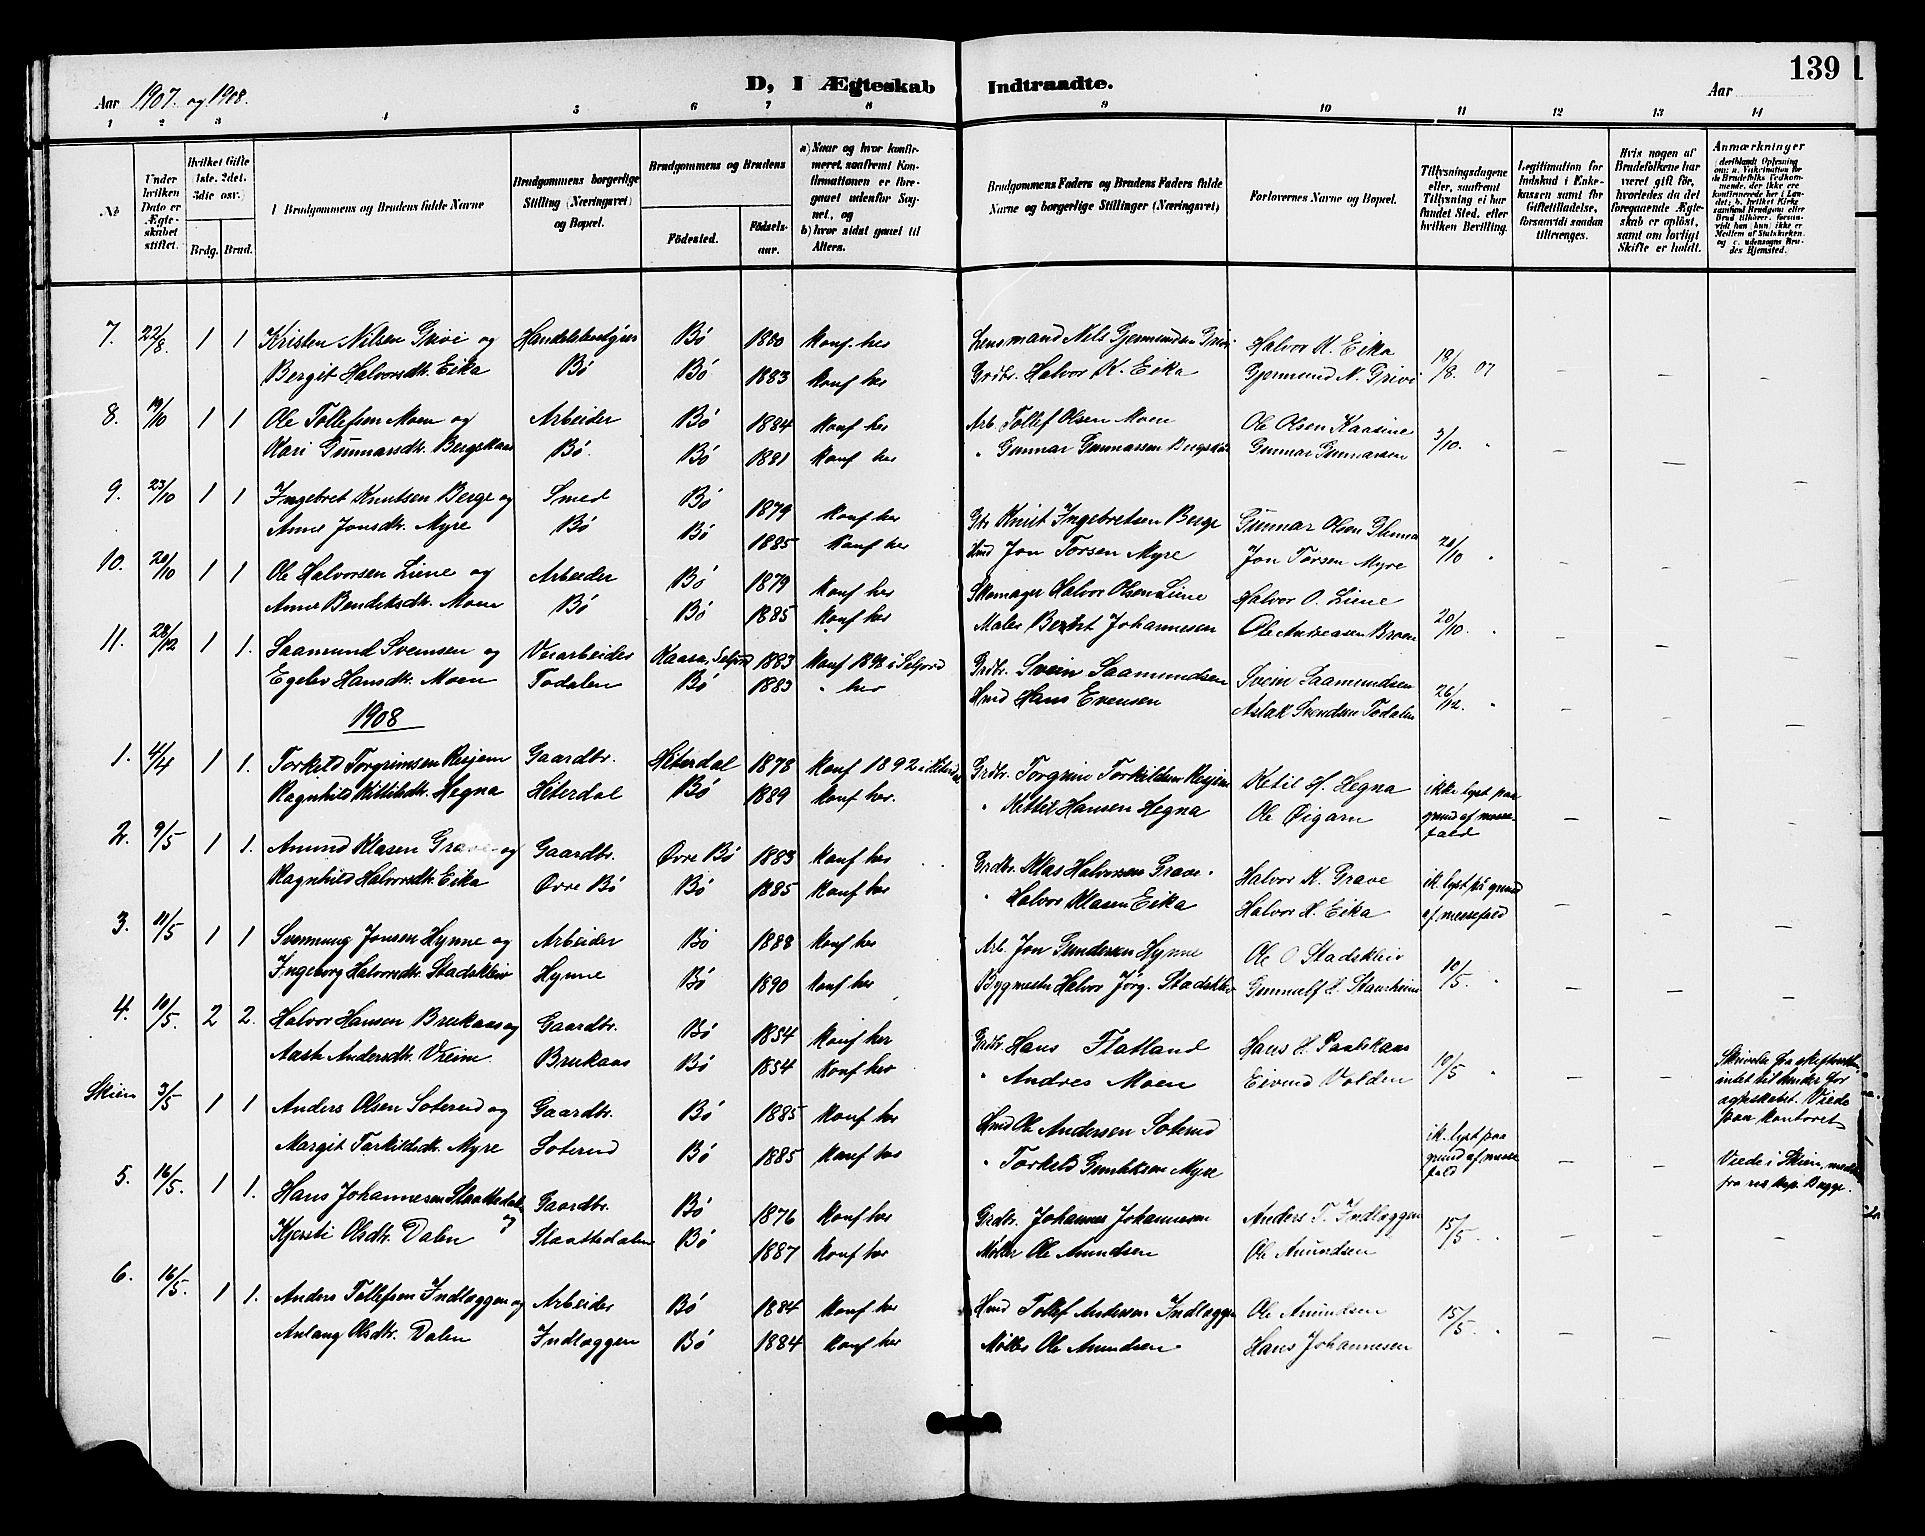 139
Aar 1907. og 1908.
D, I Ægteskab Indtraadte.
Aar
1 2 3 4 5 6 7 8 9 10 11 12 13 14
No.
Under hvilken Dato er Ægteskabet stiftet.
Hvilket Gifte (1ste. 2det. 3die osv.)
Brdg. Brud.
Brudgommens og Brudens fulde Navne
Brudgommens borgerlige Stilling (Næringsvei) og Bopæl.
Brudgommens og Brudens
Födested.
Födselsaar.
a) Naar og hvor konfirmeret, saafremt Konfirmationen er foregaaet udenfor Sognet, og
b) hvor sidst gaaet til Alters.
Brudgommens Faders og Brudens Faders fulde Navne og borgerlige Stillinger (Næringsvei)
Forlovernes Navne og Bopæl.
Tillysningsdagene eller, saafremt Tillysning ei har fundet Sted, efter hvilken Bevilling.
Legitimation for Indskud i Enkekassen samt for Giftetilladelse, forsaavidt saadan tiltrænges.
Hvis nogen af Brudefolkene har været gift för, hvorledes da det foregaaende Ægteskab er oplöst, samt om lovligt Skifte er holdt.
Anmærkninger
7. 22/8. 1 1 Kristen Nilsen Grivi og Handelsbestyrer Bø 1880 Konf. her Lensmand Nils Gjermundsen Grivi Halvor K. Eika 18/8 07
Bergit Halvorsdtr. Eika Bø Bø 1883 Konf her Grdbr. Halvor K. Eika Gjermund N. Grivi
8. 19/10 1 1 Ole Tollefsen Moen og Arbeider Bø 1884 Konf her Arb. Tollef Olsen Moen Ole Olsen Kaasine 3/10. "
Kari Gunnarsdtr. Bergskaas Bø. Bø 1881 Konf her " Gunnar Gunnarsen Bergskaas Gunnar Gunnarsen
9. 23/10 1 1 Ingebret Knutsen Berge og Smed Bø 1879 Konf her Gbr Knut Ingebretsen Berge Gunnar Olsen 20/10 "
Anne Jonsdtr. Myre Bø Bø 1885 Konf her Hmd Jon Torsen Myre Jon Torsen Myre
10. 20/10 1 1 Ole Halvorsen Liene og Arbeider Bø 1879 Konf her Skomager Halvor Olsen Liene Halvor O. Liene 20/10. "
Anne Bendiksdtr. Moen Bø Bø 1885 Konf her Maler Johannesen Ole Andreasen
11. 28/12 1 1. Saamund Svensen og Veiarbeider Kaasa, Selfjord 1883 Konf 1898 i Selfjord Grdbr. Svein Saamundsen Svein Saamundsen 26/12. "
Egelev Hansdtr. Moen Todalen Bø 1883 " her Hmd Hans Evensen Aslak Svendsen Todalen
1908
1. 4/4 1 1. Torkild Torgrimsen Risjem Gaardbr. Hiterdal 1878 Konf 1892 i Hiterdal Grdbr. Torgrim Torkildsen Risjem Ketil H. Hegna ikke lyst paa grund af messefald
Ragnhild Kittilsdtr. Hegna Hiterdal Bø 1889 Konf her. " Kittil Hansen Hegna Ole Øigarn
2. 9/5 1 1. Amund Klasen Grave og Gaardbr. Øvre Bø 1883 Konf her Grdbr. Klas Halvorsen Grave. Halvor K. Grave ik. lyst på grund af messefald
Ragnhild Halvorsdtr. Eika Øvre Bø Bø 1885 Konf her " Halvor Klasen Eika Halvor H. Eika
3. 11/5 1 1 Svenning Jonsen Hynne og Arbeider Bø 1888 Konf her Arb. Jon Gundersen Hynne Ole O Stadskleiv 10/5. "
Ingeborg Halvorsdtr. Stadskleiv Hynne Bø 1890 Konf her Bygmester Halvor Jörg. Stadskleiv
4. 10/5. 2 2. Halvor Hansen Brukaas og Gaardbr. Bø 1854 Konf her Grdbr. Hans Flatland Hans H. 10/5 "
Aaste Andersdtr. Vreim Brukaas Bø 1854 Konf her " Andres Moen Eivind Volden
Skien 3/5 1 1 Anders Olsen Soterud og Gaardbr. Bø 1885 Konf her Hmd Ole Andersen Soterud ik. lyst paa grund af messefald
Margit Torkildsdtr. Myre Soterud Bø 1885 Konf her " Torkild Myre Viede i Skien,
5. 16/5. 1 1. Hans Johannesen Slaattedalen og Gaardbr. Bø 1876 Konf her Grdbr. Johannes Johannesen Anders T. Indlæggen 15/5. "
Kjersti Olsdtr. Dalen Slaattedalen Bø 1887 Konf her Møller Ole Amundsen Ole Amundsen
6. 16/5. 1 1. Anders Tollefsen Indlæggen og Arbeider Bø 1884 Konf her Hmd Tollef Andersen Indlæggen Ole Amundsen 15/5. "
Anlaug Olsdtr. Dalen Indlæggen Bø 1884 Konf her Møller Ole Amundsen Hans Johannesen